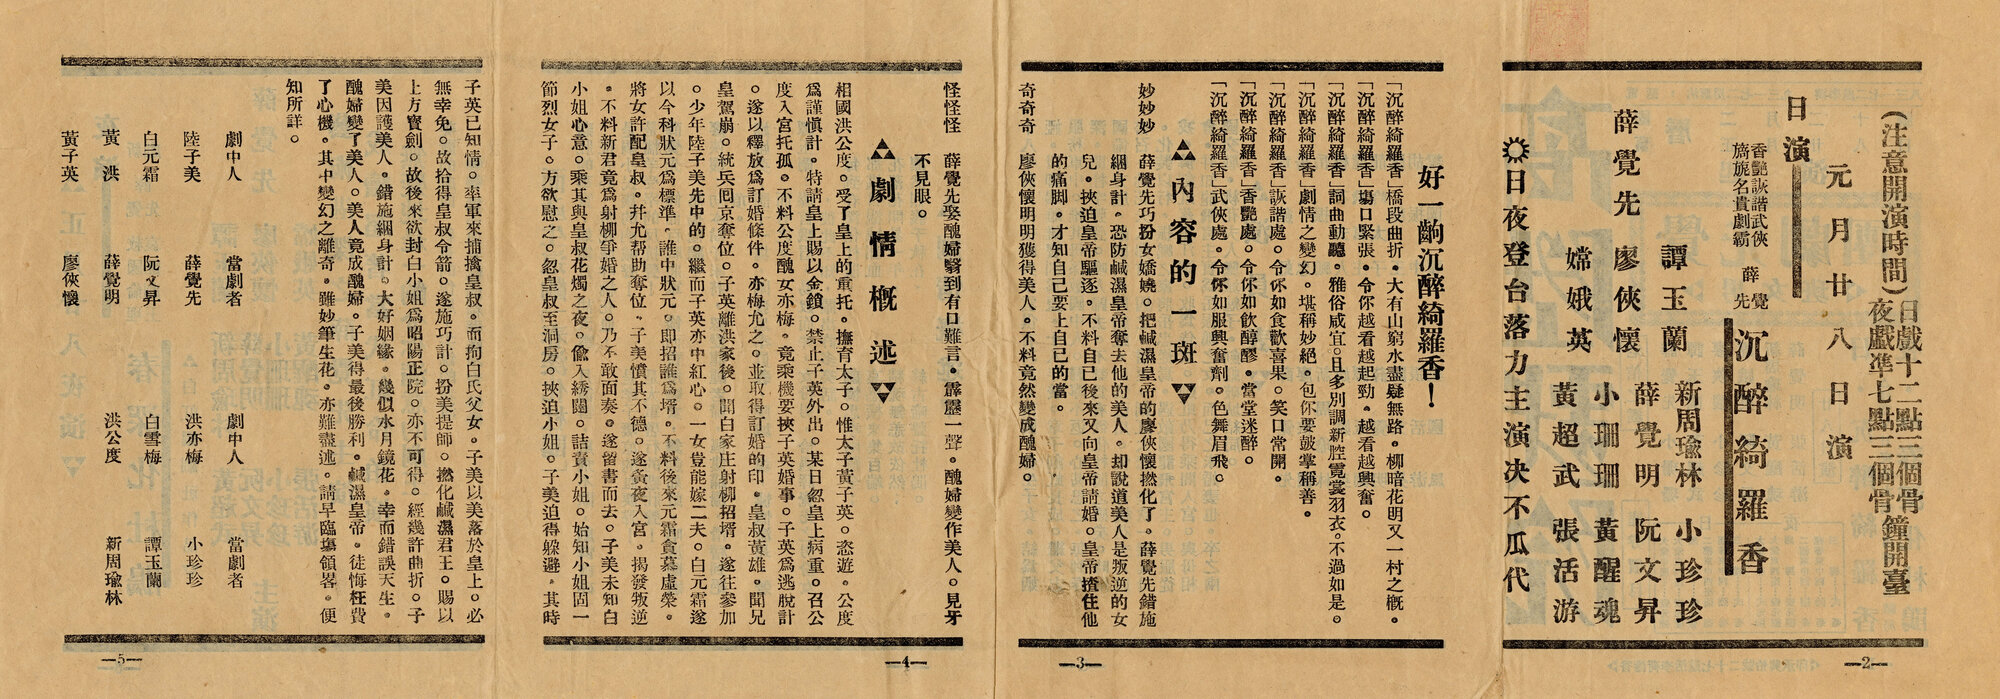 (注意開演時間)日戲十二點三個骨鐘開臺
夜戲準七點三個骨鐘開臺
元月廿八日演
日演
香艷詼諧武俠
旖旎名貴劇霸
薛覺先
沉醉綺羅香
薛覺先 廖俠懷 嫦娥英 譚玉蘭
新周瑜林 小珍珍
薛覺明 阮文昇
小珊珊 黃醒魂
黃超武 張活游
日夜登台落力主演决不瓜代
—2—
好一齣沉醉綺羅香!
「沉醉綺羅香」橋段曲折。大有山窮水盡疑無路。柳暗花明又一村之概。
「沉醉綺羅香」塲口緊張。令你越看越起勁。越看越興奮。
「沉醉綺羅香」詞曲動聽。雅俗咸宜。且多別調新腔霓裳羽衣。不過如是。
「沉醉綺羅香」劇情之變幻。堪稱妙絕。包你要鼓掌稱善。
「沉醉綺羅香」詼諧處。令你如食歡喜果。笑口常開。
「沉醉綺羅香」香艷處。令你如飲醇醪。當堂迷醉。
「沉醉綺羅香」武俠處。令你如服興奮劑。色舞眉飛。
內容的一斑
妙妙妙 薛覺先巧扮女嬌嬈。把鹹濕皇帝的廖俠懷撚化了。薛覺先錯施
綑身計。恐防鹹濕皇帝奪去他的美人。却說道美人是叛逆的女
兒。挾迫皇帝驅逐。不料自己後來又向皇帝請婚。皇帝揸住他
的痛脚。才知自己要上自己的當。
奇奇奇 廖俠懷明明獲得美人。不料竟然變成醜婦。
—3—
怪怪怪 薛覺先娶醜婦翳到有口難言。霹靂一聲。醜婦變作美人。見牙
不見眼。
劇情概述
相國洪公度。受了皇上的重托。撫育太子。惟太子黃子英。恣遊。公度
爲謹慎計。特請皇上賜以金鎖。禁止子英外出。某日忽皇上病重。召公
度入宮托孤。不料公度醜女亦梅。竟乘機要挾子英婚事。子英爲逃脫計
。遂以釋放爲訂婚條件。亦梅允之。並取得訂婚的印。皇叔黃雄。聞兄
皇駕崩。統兵囘京奪位。子英離洪家後。聞白家庄射柳招壻。遂往參加
。少年陸子美先中的。繼而子英亦中紅心。一女豈能嫁二夫。白元霜遂
以今科狀元爲標準。誰中狀元。即招誰爲壻。不料後來元霜貪慕虛榮。
將女許配皇叔。并允帮助奪位。子美憤其不德。遂黃夜入宮。揭發叛逆
。不料新君竟爲射柳爭婚之人。乃不敢面奏。遂留書而去。子美未知白
小姐心意。乘其與皇叔花燭之夜。偸入綉閣。詰責小姐。始知小姐固一
節烈女子。方欲慰之。忽皇叔至洞房。挾迫小姐。子美迫得躲避。其時
—4—
子英已知情。率軍來捕擒皇叔。而拘白氏父女。子美以美落於皇上。必
無幸免。故拾得皇叔令箭。遂施巧計。扮美提師。撚化鹹濕君王。賜以
上方寳劍。故後來欲封白小姐爲昭陽正院。亦不可得。經幾許曲折。子
美因護美人。錯施綑身計。大好姻緣。幾似水月鏡花。幸而錯誤天生。
醜婦變了美人。美人竟成醜婦。子美得最後勝利。鹹濕皇帝。徒悔枉費
了心機。其中變幻之離奇。雖妙筆生花。亦難盡述。請早臨塲領畧。便
知所詳。
劇中人 當劇者 劇中人 當劇者
陸子美 薛覺先 洪亦梅 小珍珍
白元霜 阮文昇 白雪梅 譚玉蘭
黃洪 薛覺明 洪公度 新周瑜林
黃子英 廖俠懷
—5—